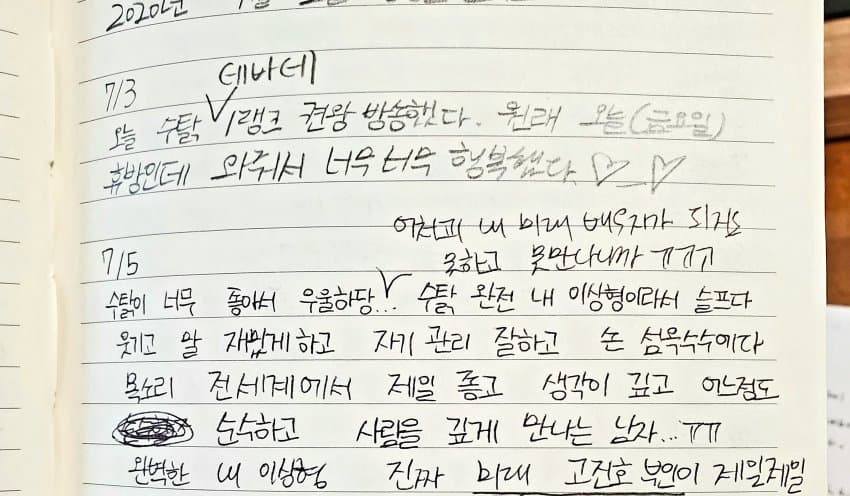 2020년
7/3
데바데
오늘 수탉 1랭크 견왕 방송했다. 원래 오늘(금요일)
휴방인데 와줘서 너무너무 행복했다 ♡_♡
어차피 내 미래 배우자가 되지도
못하고 못만나니까 ㅠㅠㅠ
7/5
수탉이 너무 좋아서 우울하당... 수탉 완전 내 이상형이라서 슬프다
웃기고 말 재밌게 하고 자기 관리 잘하고 손 섬옥수수이다
목소리 전세계에서 제일 좋고 생각이 깊고 어느점도
순수하고 사람을 깊게 만나는 남자...ㅠㅠ
완벽한 내 이상형 진짜 미래 고진호 부인이 제일제일